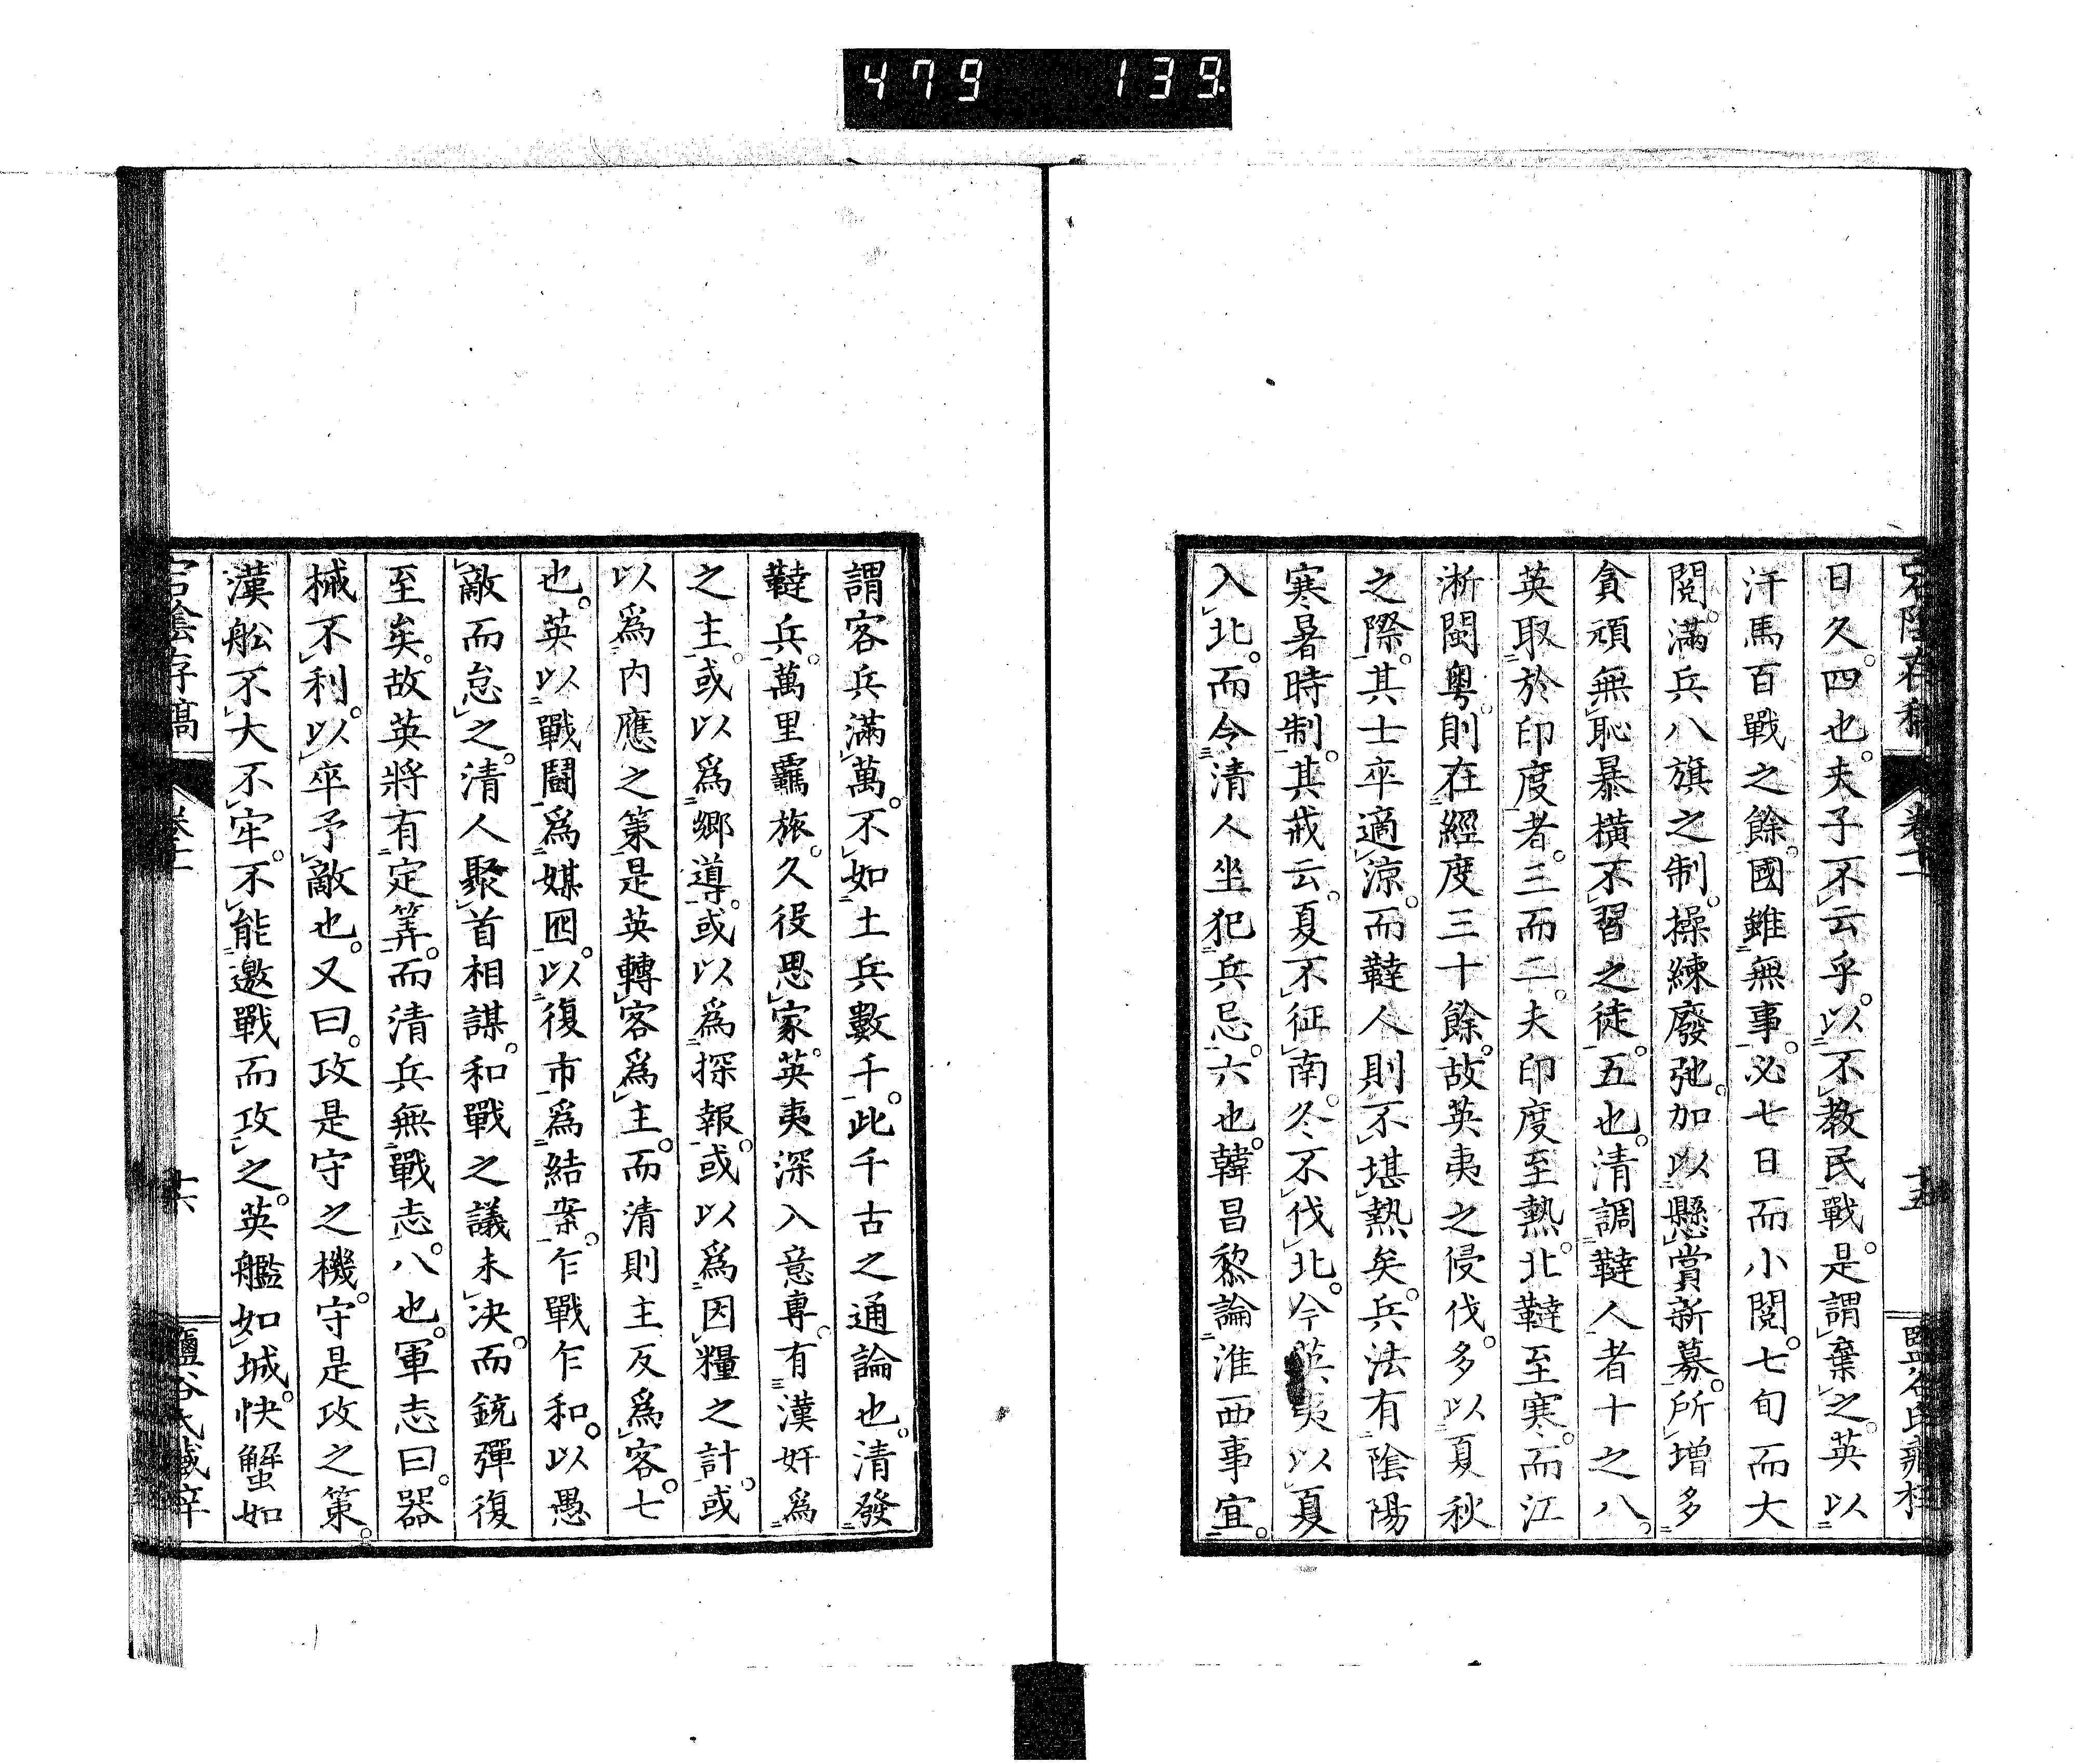 479 139.
日久。四也。夫子不云乎。以不教民戰。是謂棄之。英以
汗馬百戰之餘。國雖無事。必七日而小閱。七旬而大
閱。滿兵八旗之制。操練廢弛。加以懸賞新募。所增多
貪頑無恥暴橫不習之徒。五也。清調韃人者十之八。
英取於印度者。三而二。夫印度至熱。北韃至寒。而江
淅閩粤。則在經度三十餘。故英夷之侵伐。多以夏秋
之際。其士卒適涼。而韃人則不堪熱矣。兵法有陰陽
寒暑時制。其戒云。夏不征南。冬不伐北。今英夷以夏
入北。而令清人坐犯兵忌。六也。韓昌黎論淮西事宜。
謂客兵滿萬。不如土兵數千。此千古之通論也。清發
韃兵。萬里羈旅。久役思家。英夷深入意專。有漢奸爲
之主。或以爲鄉導。或以爲探報。或以爲因糧之計。或
以爲内應之策。是英轉客爲主。而清則主反爲客。七
也。英以戰鬪爲媒囮。以復市爲結案。乍戰乍和。以愚
敵而怠之。清人聚首相謀。和戰之議未決。而銃彈復
至矣。故英將有定筭。而清兵無戰志。八也。軍志曰。器
械不利。以卒予敵也。又曰。攻是守之機。守是攻之策。
漢舩不大不牢。不能邀戰而攻之。英艦如城。快蟹如
宕陰存稿
十六